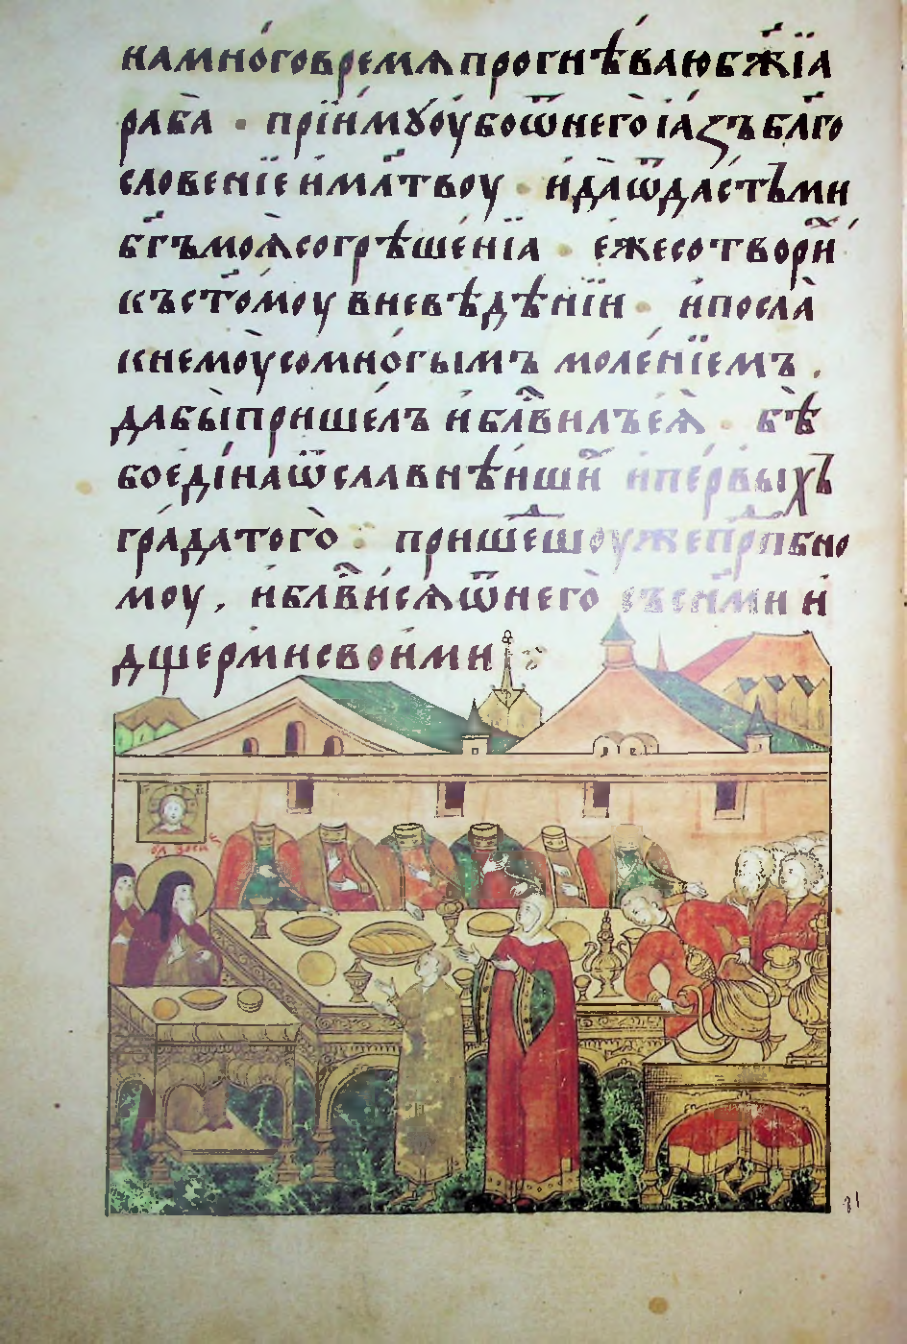 намно́говремѧпрогнѣ́ваюбж҃їѧ
раба̀ · прїи́мꙋоу́боѿнегѐїа́зъбл҃го
слове́нїеи҆мл҃твоу · и҆да̀ѿда́стъми
бг҃ъмоѧ҆согрѣше́нїа · є҆́жесотвори́хъ
къст҃о́моу вневѣ́дѣнїи · и҆посла̀
кнемоу̀сомно́гымъ моле́нїемъ .
дабы̀прише́лъ и҆блⷭ҇вилъе҆ѧ̀ · бѣ̀
боє҆ди́наѿславнѣ́йшихъ и҆пе́рвыхъ
гра́датого̀ · прише́дшоужепрⷣпбно
моу, и҆блⷭ҇ви́сѧѿнего̀ съси́ми и҆
дще́рмисвои́ми :